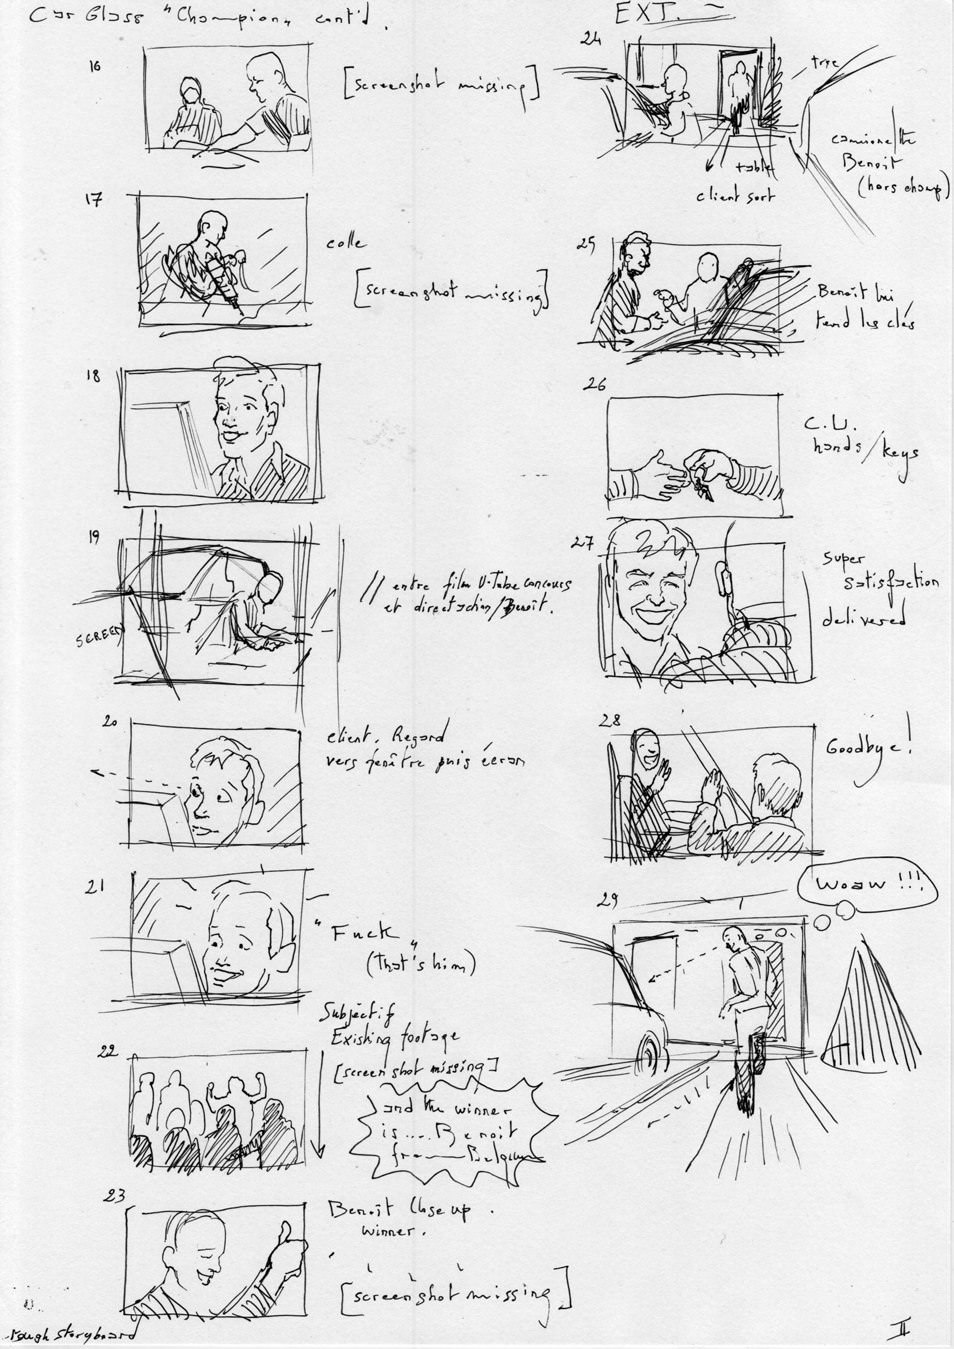 Car Glass "Champion" cont'd.
16
[screenshot missing]
17
colle
[screenshot missing]
18
19
SCREEN
// entre film U-Tube concours
et direct action/Benoît.
20
client. Regard
vers fenêtre puis écran
21
"Fuck"
(that's him)
Subjectif
Existing footage
22
[screenshot missing]
and the winner
is.... Benoit
from Belgium
23
Benoît Close up.
winner.
[screenshot missing]
rough storyboard
EXT.
24
tree
camionette
Benoit
(hors champ)
table
client sort
25
Benoît lui
tend les clés
26
C.U.
hands/keys
27
Super
satisfaction
delivered
28
Goodbye!
29
Woaw !!!
II